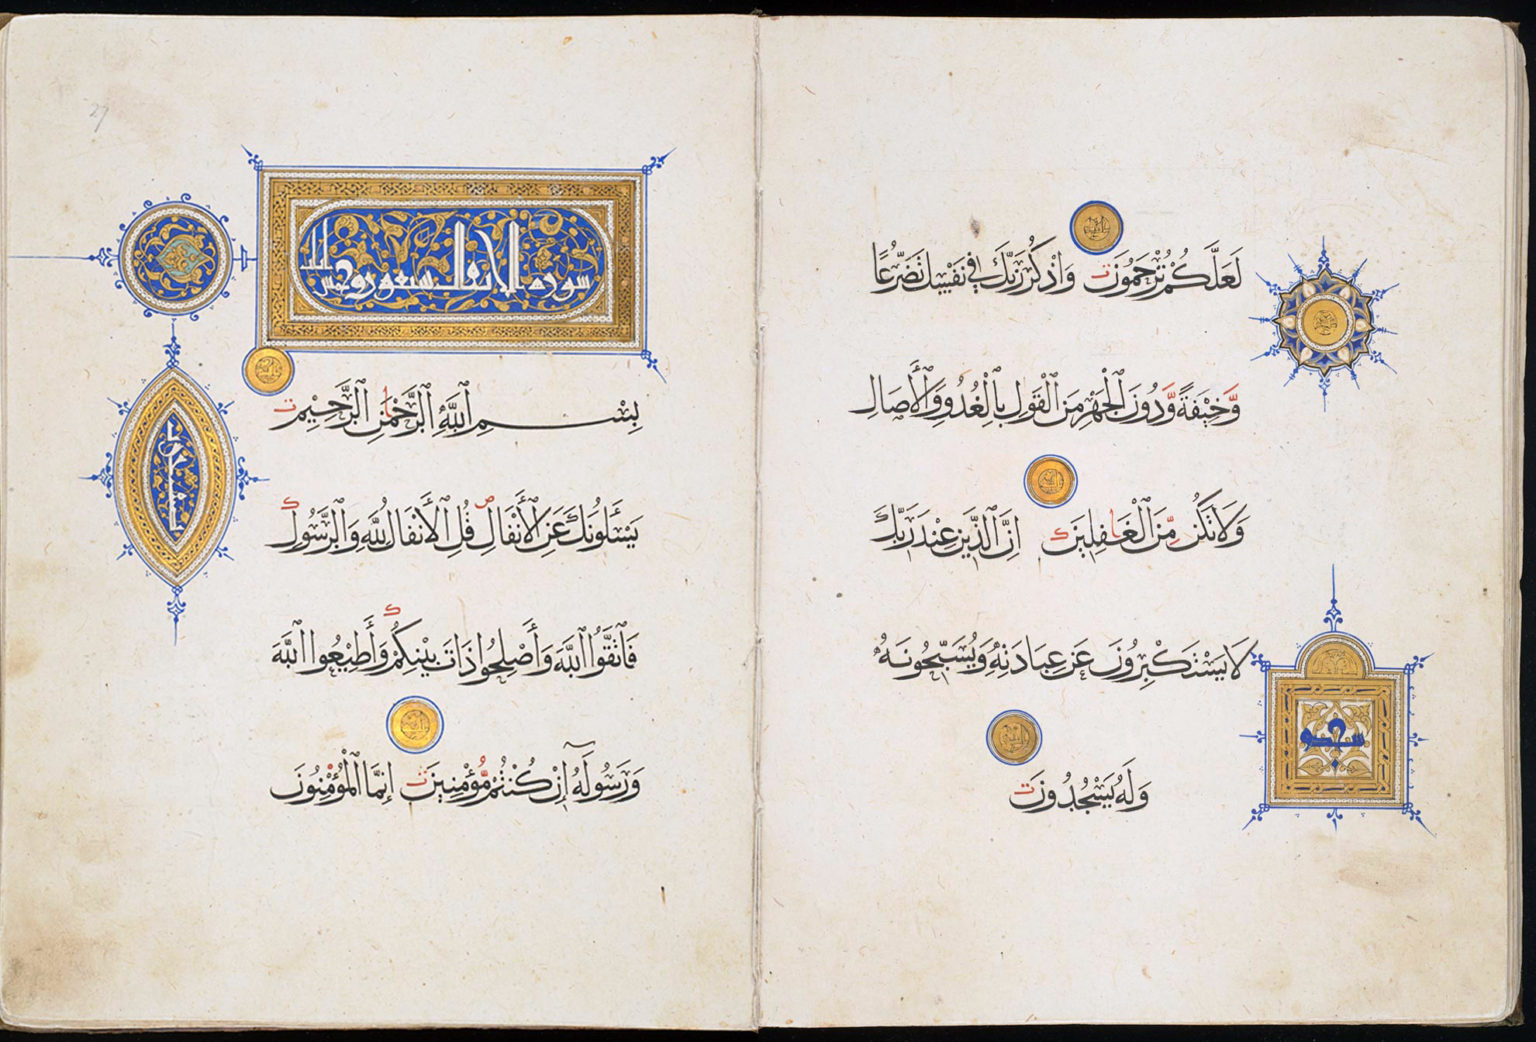 لَعَلَّكُمْ تُرْحَمُونَ وَاذْكُرْ رَبَّكَ فِي نَفْسِكَ تَضَرُّعًا
وَّخِيْفَةً وَّدُونَ الْجَهْرِ مِنَ الْقَوْلِ بِالْغُدُوِّ وَالْأَصَالِ
وَلَا تَكُنْ مِّنَ الْغَافِلِينَ إِنَّ الَّذِينَ عِنْدَ رَبِّكَ
لَا يَسْتَكْبِرُونَ عَنْ عِبَادَتِهِ وَيُسَبِّحُونَهُ
سجده
وَلَهُ يَسْجُدُونَ
سورة الانفال سبعون وخمس
بِسْمِ اللَّهِ الرَّحْمَٰنِ الرَّحِيْمِ
يَسْأَلُونَكَ عَنِ الْأَنْفَالِ قُلِ الْأَنْفَالُ لِلَّهِ وَالرَّسُولِ
فَاتَّقُوا اللَّهَ وَأَصْلِحُوا ذَاتَ بَيْنِكُمْ وَأَطِيْعُوا اللَّهَ
وَرَسُولَهُ إِنْ كُنْتُمْ مُّؤْمِنِينَ إِنَّمَا الْمُؤْمِنُونَ